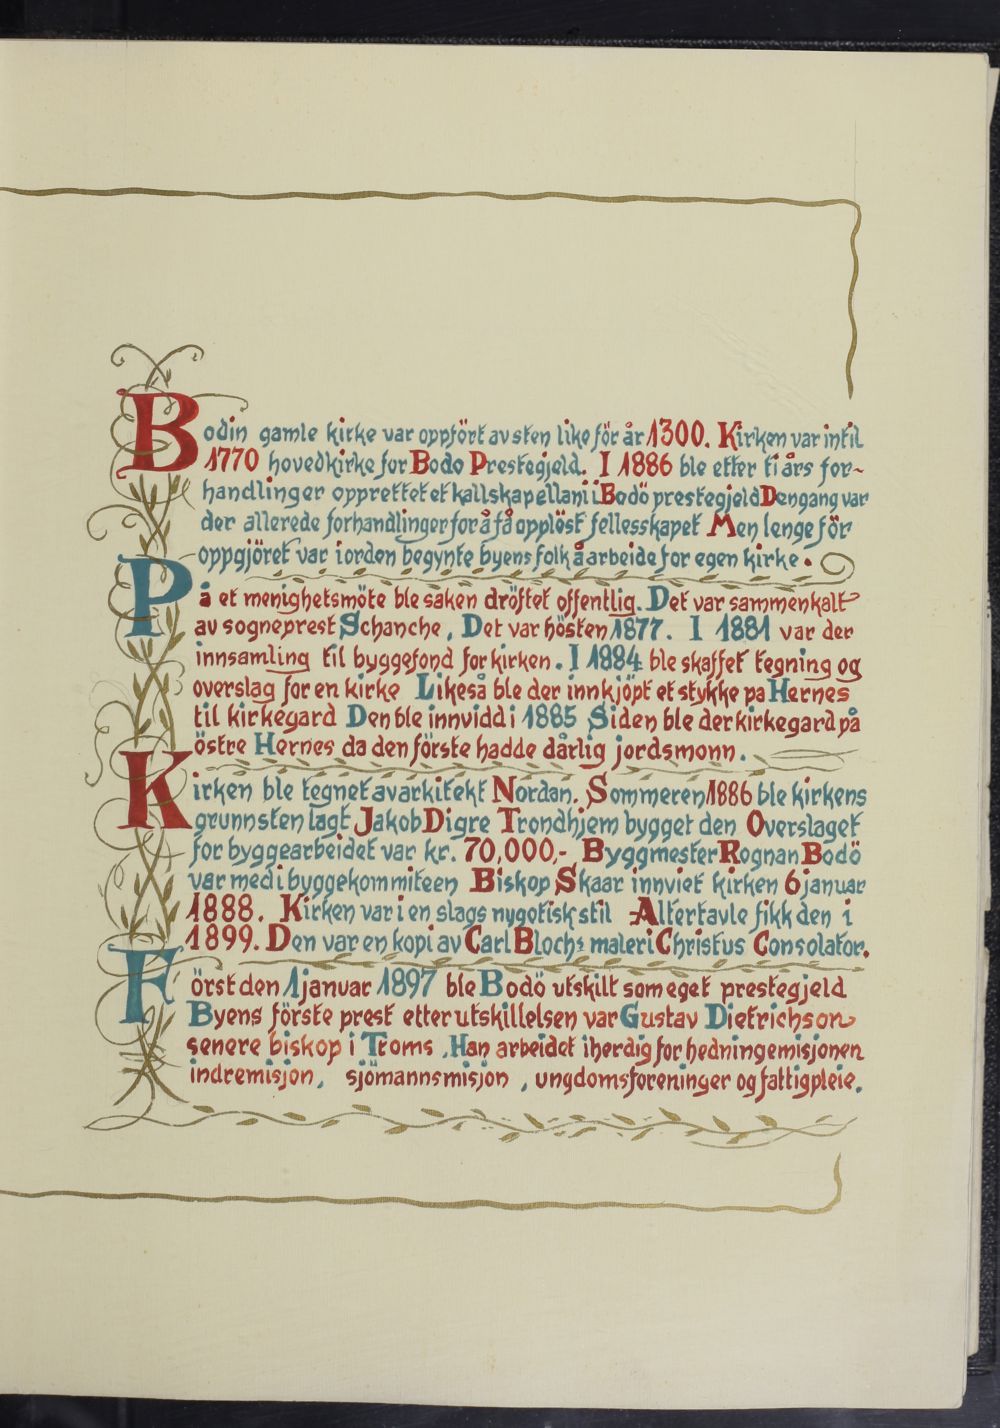 Bodin gamle kirke var oppfört av sten like för år 1300. Kirken var inntil
1770 hovedkirke for Bodo Prestegjeld. I 1886 ble etter ti års for-
handlinger opprettet et kallskapellani i Bodö prestegjeld Dengang var
der allerede forhandlinger for å få opplöst fellesskapet Men lenge för
oppgjöret var iorden begynte byens folk å arbeide for egen kirke.
På et menighetsmöte ble saken dröftet offentlig. Det var sammenkalt
av sogneprest Schanche, Det var hösten 1877. I 1881 var der
innsamling til byggefond for kirken. I 1884 ble skaffet tegning og
overslag for en kirke Likeså ble der innkjöpt et stykke pa Hernes
til kirkegard Den ble innvidd i 1885 Siden ble der kirkegard på
östre Hernes da den förste hadde dårlig jordsmonn.
Kirken ble tegnet av arkitekt Nordan. Sommeren 1886 ble kirkens
grunnsten lagt Jakob Digre Trondhjem bygget den Overslaget
for byggearbeidet var kr. 70,000,- Byggmester Rognan Bodö
var med i byggekommiteen Biskop Skaar innviet kirken 6 januar
1888. Kirken var i en slags nygotisk stil Altertavle fikk den i
1899. Den var en kopi av Carl Blochs maleri Christus Consolator.
Först den 1 januar 1897 ble Bodö utskilt som eget prestegjeld
Byens förste prest etter utskillelsen var Gustav Dietrichson
senere biskop i Troms, Han arbeidet iherdig for hedningemisjonen
indremisjon, sjömannsmisjon, ungdomsforeninger og fattigpleie.